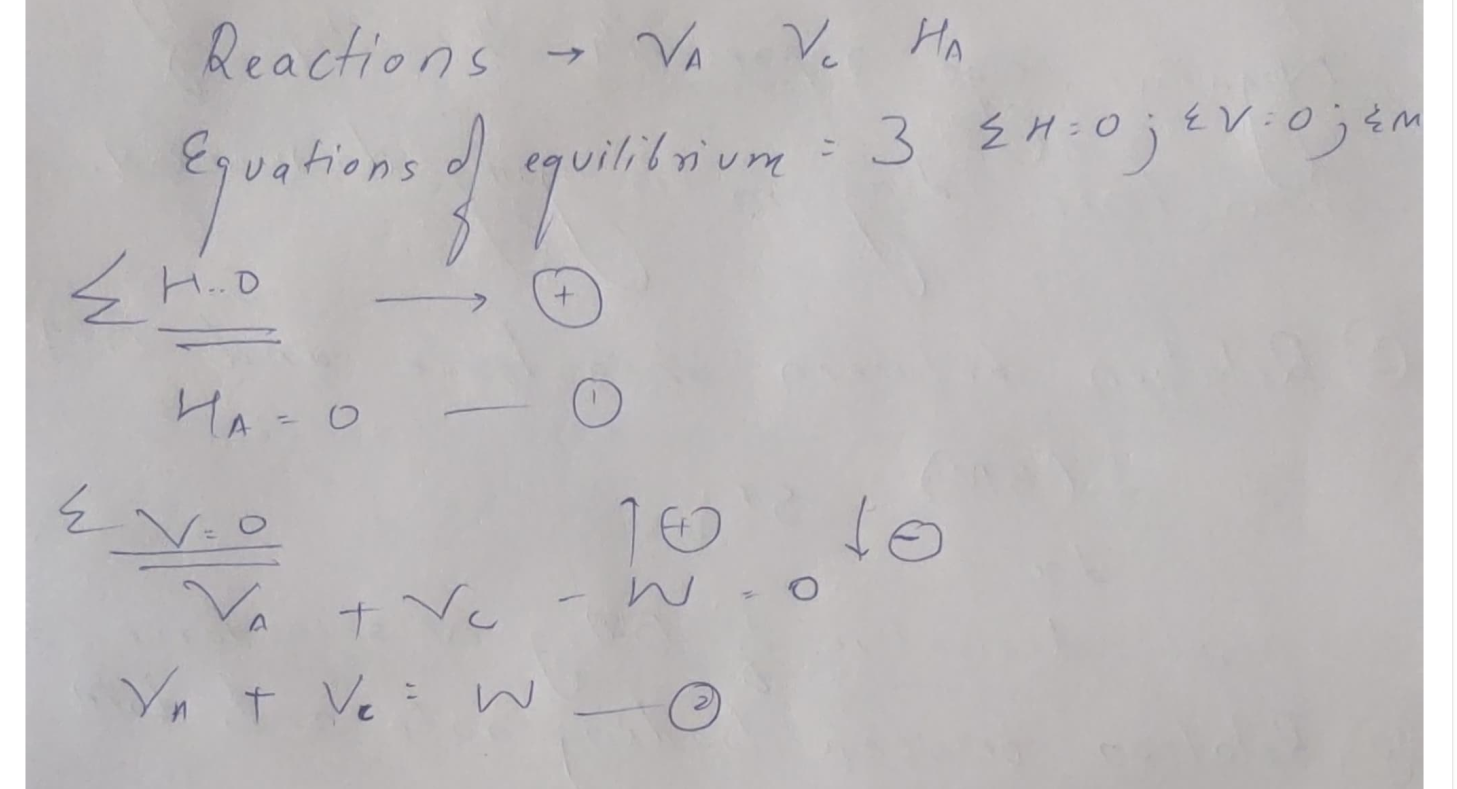 Reactions → V_A V_C H_A
Equations of equilibrium = 3 ΣH=0; ΣV=0; ΣM
ΣH=0 → ⊕
H_A = 0 — ①
ΣV=0 ↑⊕ ↓⊖
V_A + V_C - W = 0
V_A + V_C = W — ②